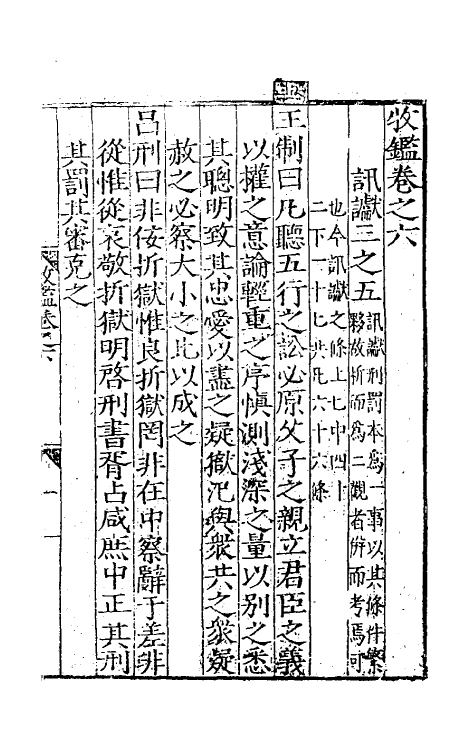 牧鑑卷之六
訊讞三之五
訊讞刑罰本爲一事以其條件繁
夥故析而爲二觀者併而考焉可
也今訊讞之條上七中四十
二下一十七共凡六十六條
上
王制曰凡聽五行之訟必原父子之親立君臣之義
以權之意論輕重之序慎測淺深之量以別之悉
其聰明致其忠愛以盡之疑獄汜與衆共之衆疑
赦之必察大小之比以成之
呂刑曰非佞折獄惟良折獄罔非在中察辭于差非
從惟從哀敬折獄明啓刑書胥占咸庶中正其刑
其罰其審克之
牧鑑卷之六
一